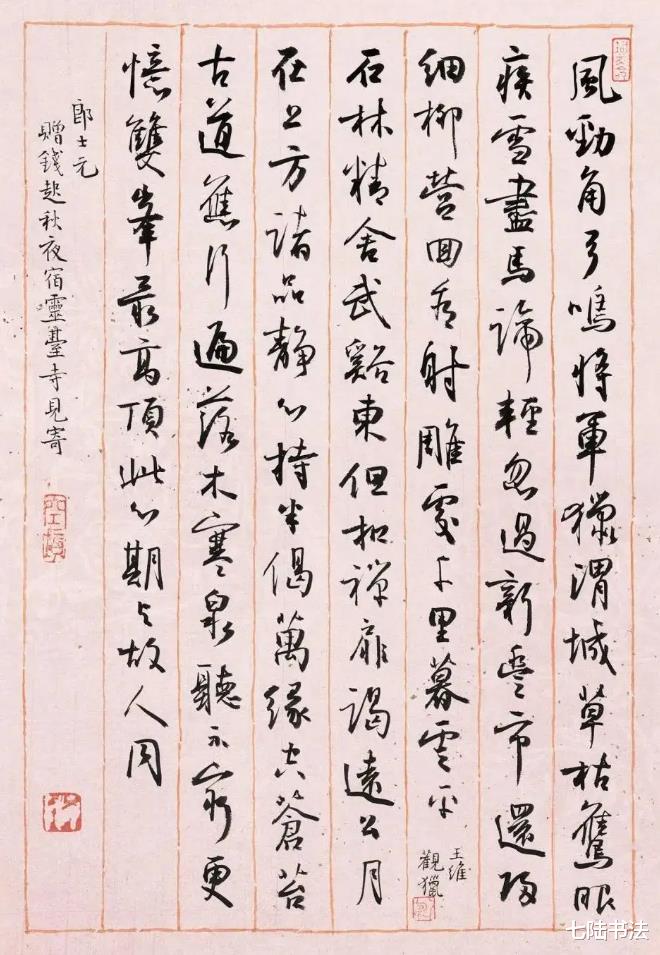 風勁角弓鳴將軍獵渭城草枯鷹眼
疾雪盡馬蹄輕忽過新豐市還歸
細柳營回看射雕處千里暮雲平
王維
觀獵
石林精舍武谿東但扣禪扉謁遠公月
在上方諸品靜心持半偈萬緣空蒼苔
古道應行遍落木寒泉聽不窮更
憶雙峯最高頂此心期与故人同
郎士元
贈錢起秋夜宿靈臺寺見寄
七陆书法